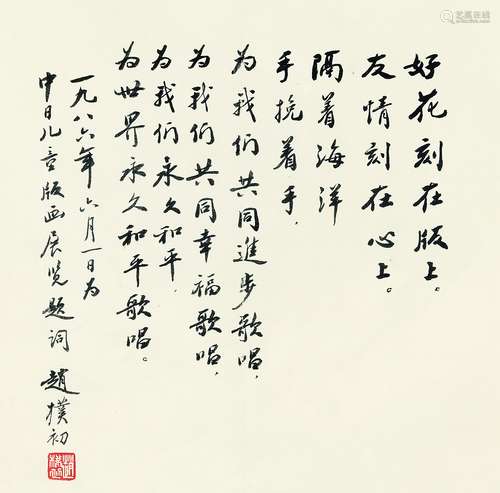 好花刻在版上。
友情刻在心上。
隔着海洋
手挽着手，
为我们共同進步歌唱，
为我们共同幸福歌唱，
为我们永久和平，
为世界永久和平歌唱。
一九八六年六月一日为
中日儿童版画展览题词 趙樸初
艺狐在线